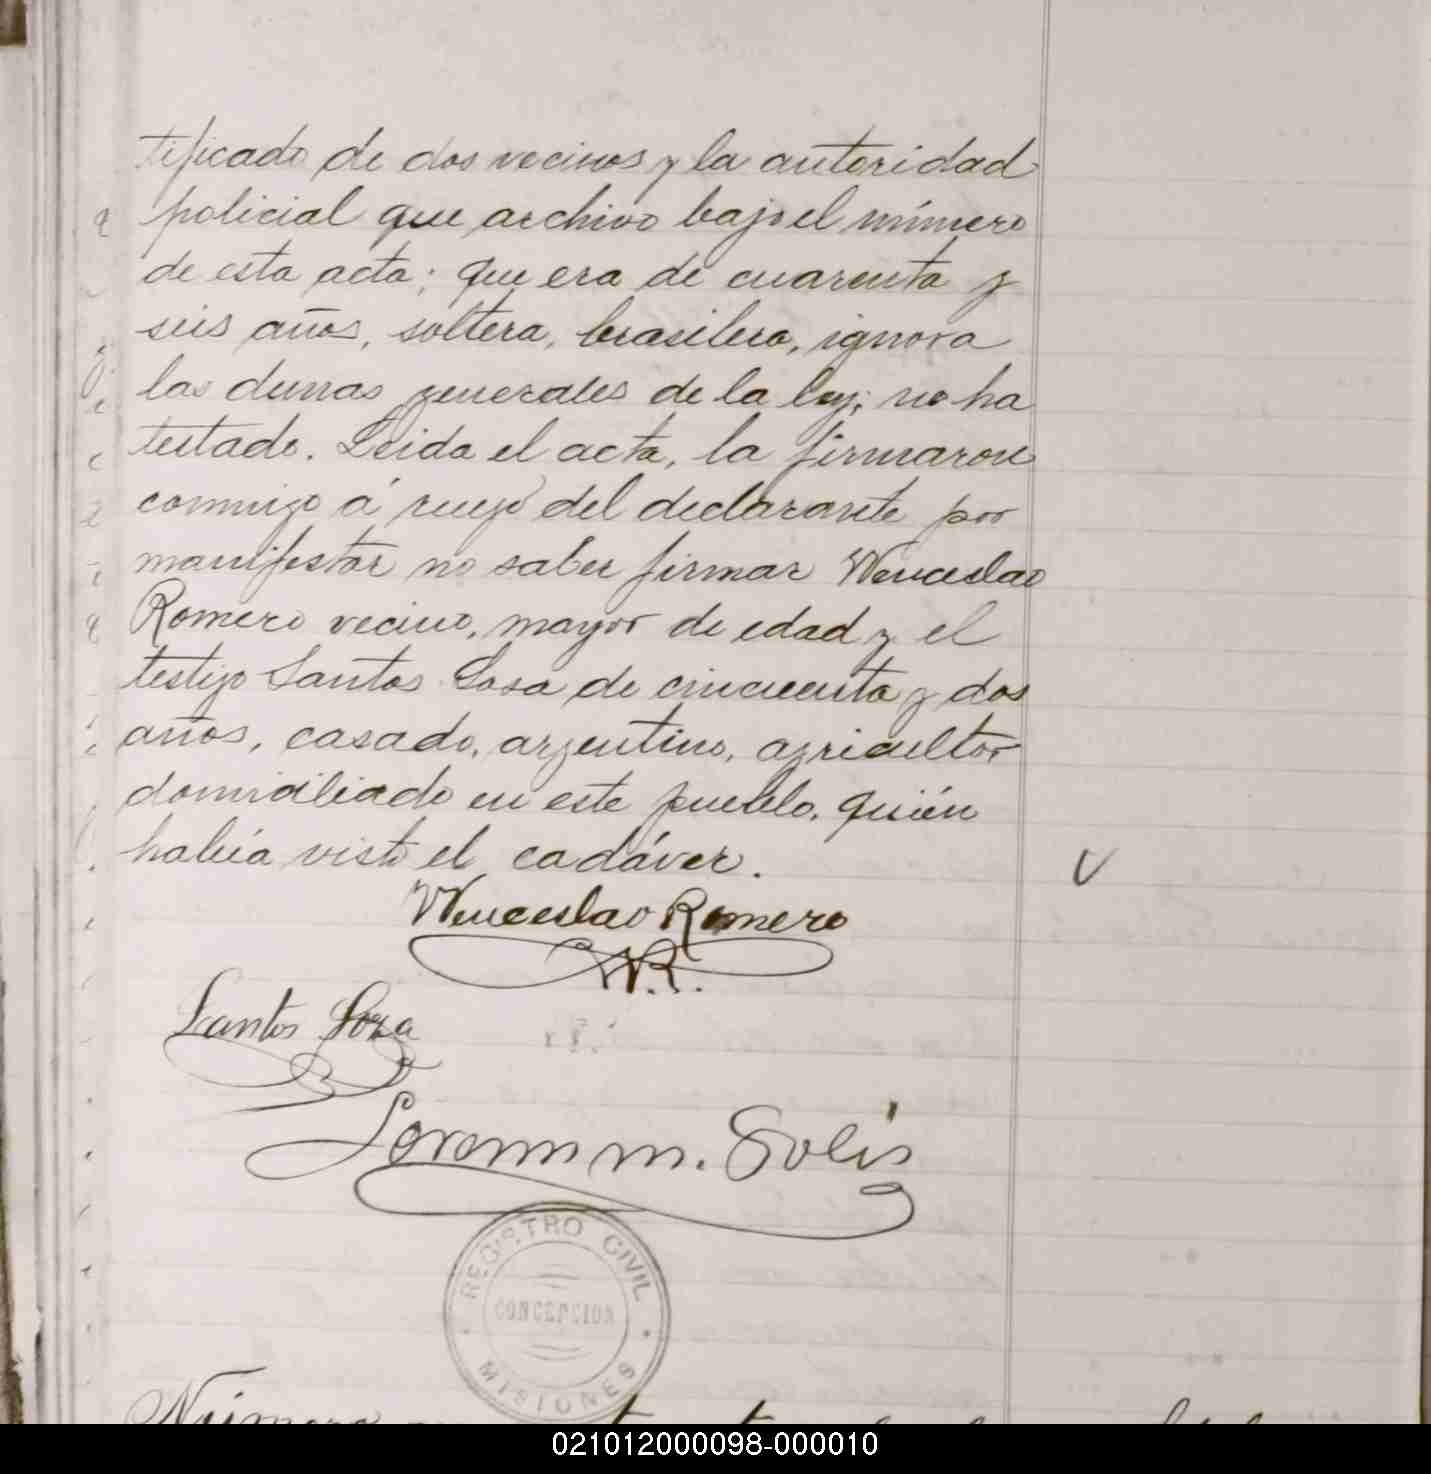 tificado de dos vecinos y la autoridad
policial que archivo bajo el número
de esta acta; que era de cuarenta y
seis años, soltera, brasilera, ignora
las demas generales de la ley; no ha
testado. Leida el acta, la firmaron
conmigo á ruego del declarante por
manifestar no saber firmar Wenceslao
Romero vecino, mayor de edad y el
testigo Santos Sosa de cincuenta y dos
años, casado, argentino, agricultor
domiciliado en este pueblo, quién
había visto el cadáver.
Wenceslao Romero
W.R.
Santos Soza
m. Solis
REGISTRO CIVIL
CONCEPCION
MISIONES
Número
021012000098-000010